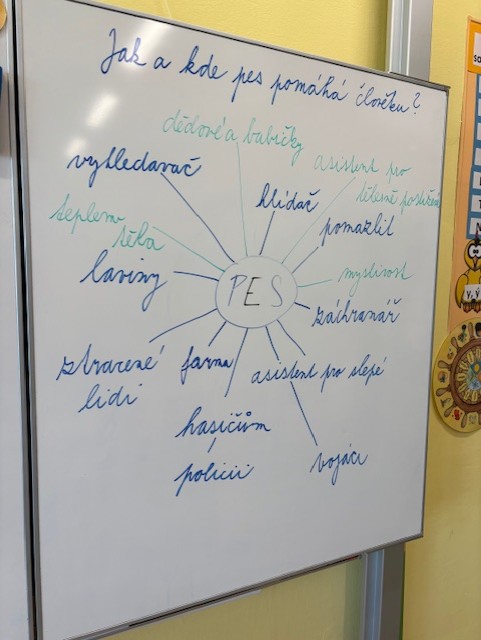 Jak a kde pes pomáhá člověku?
dědové a babičky
vyhledavač
asistent pro
tělesně postižené
hlídač
pomazlit
teplem
těka
laviny
PES
myslivost
záchranář
ztracené
lidi
farma
asistent pro slepé
hasičům
policii
vojáci